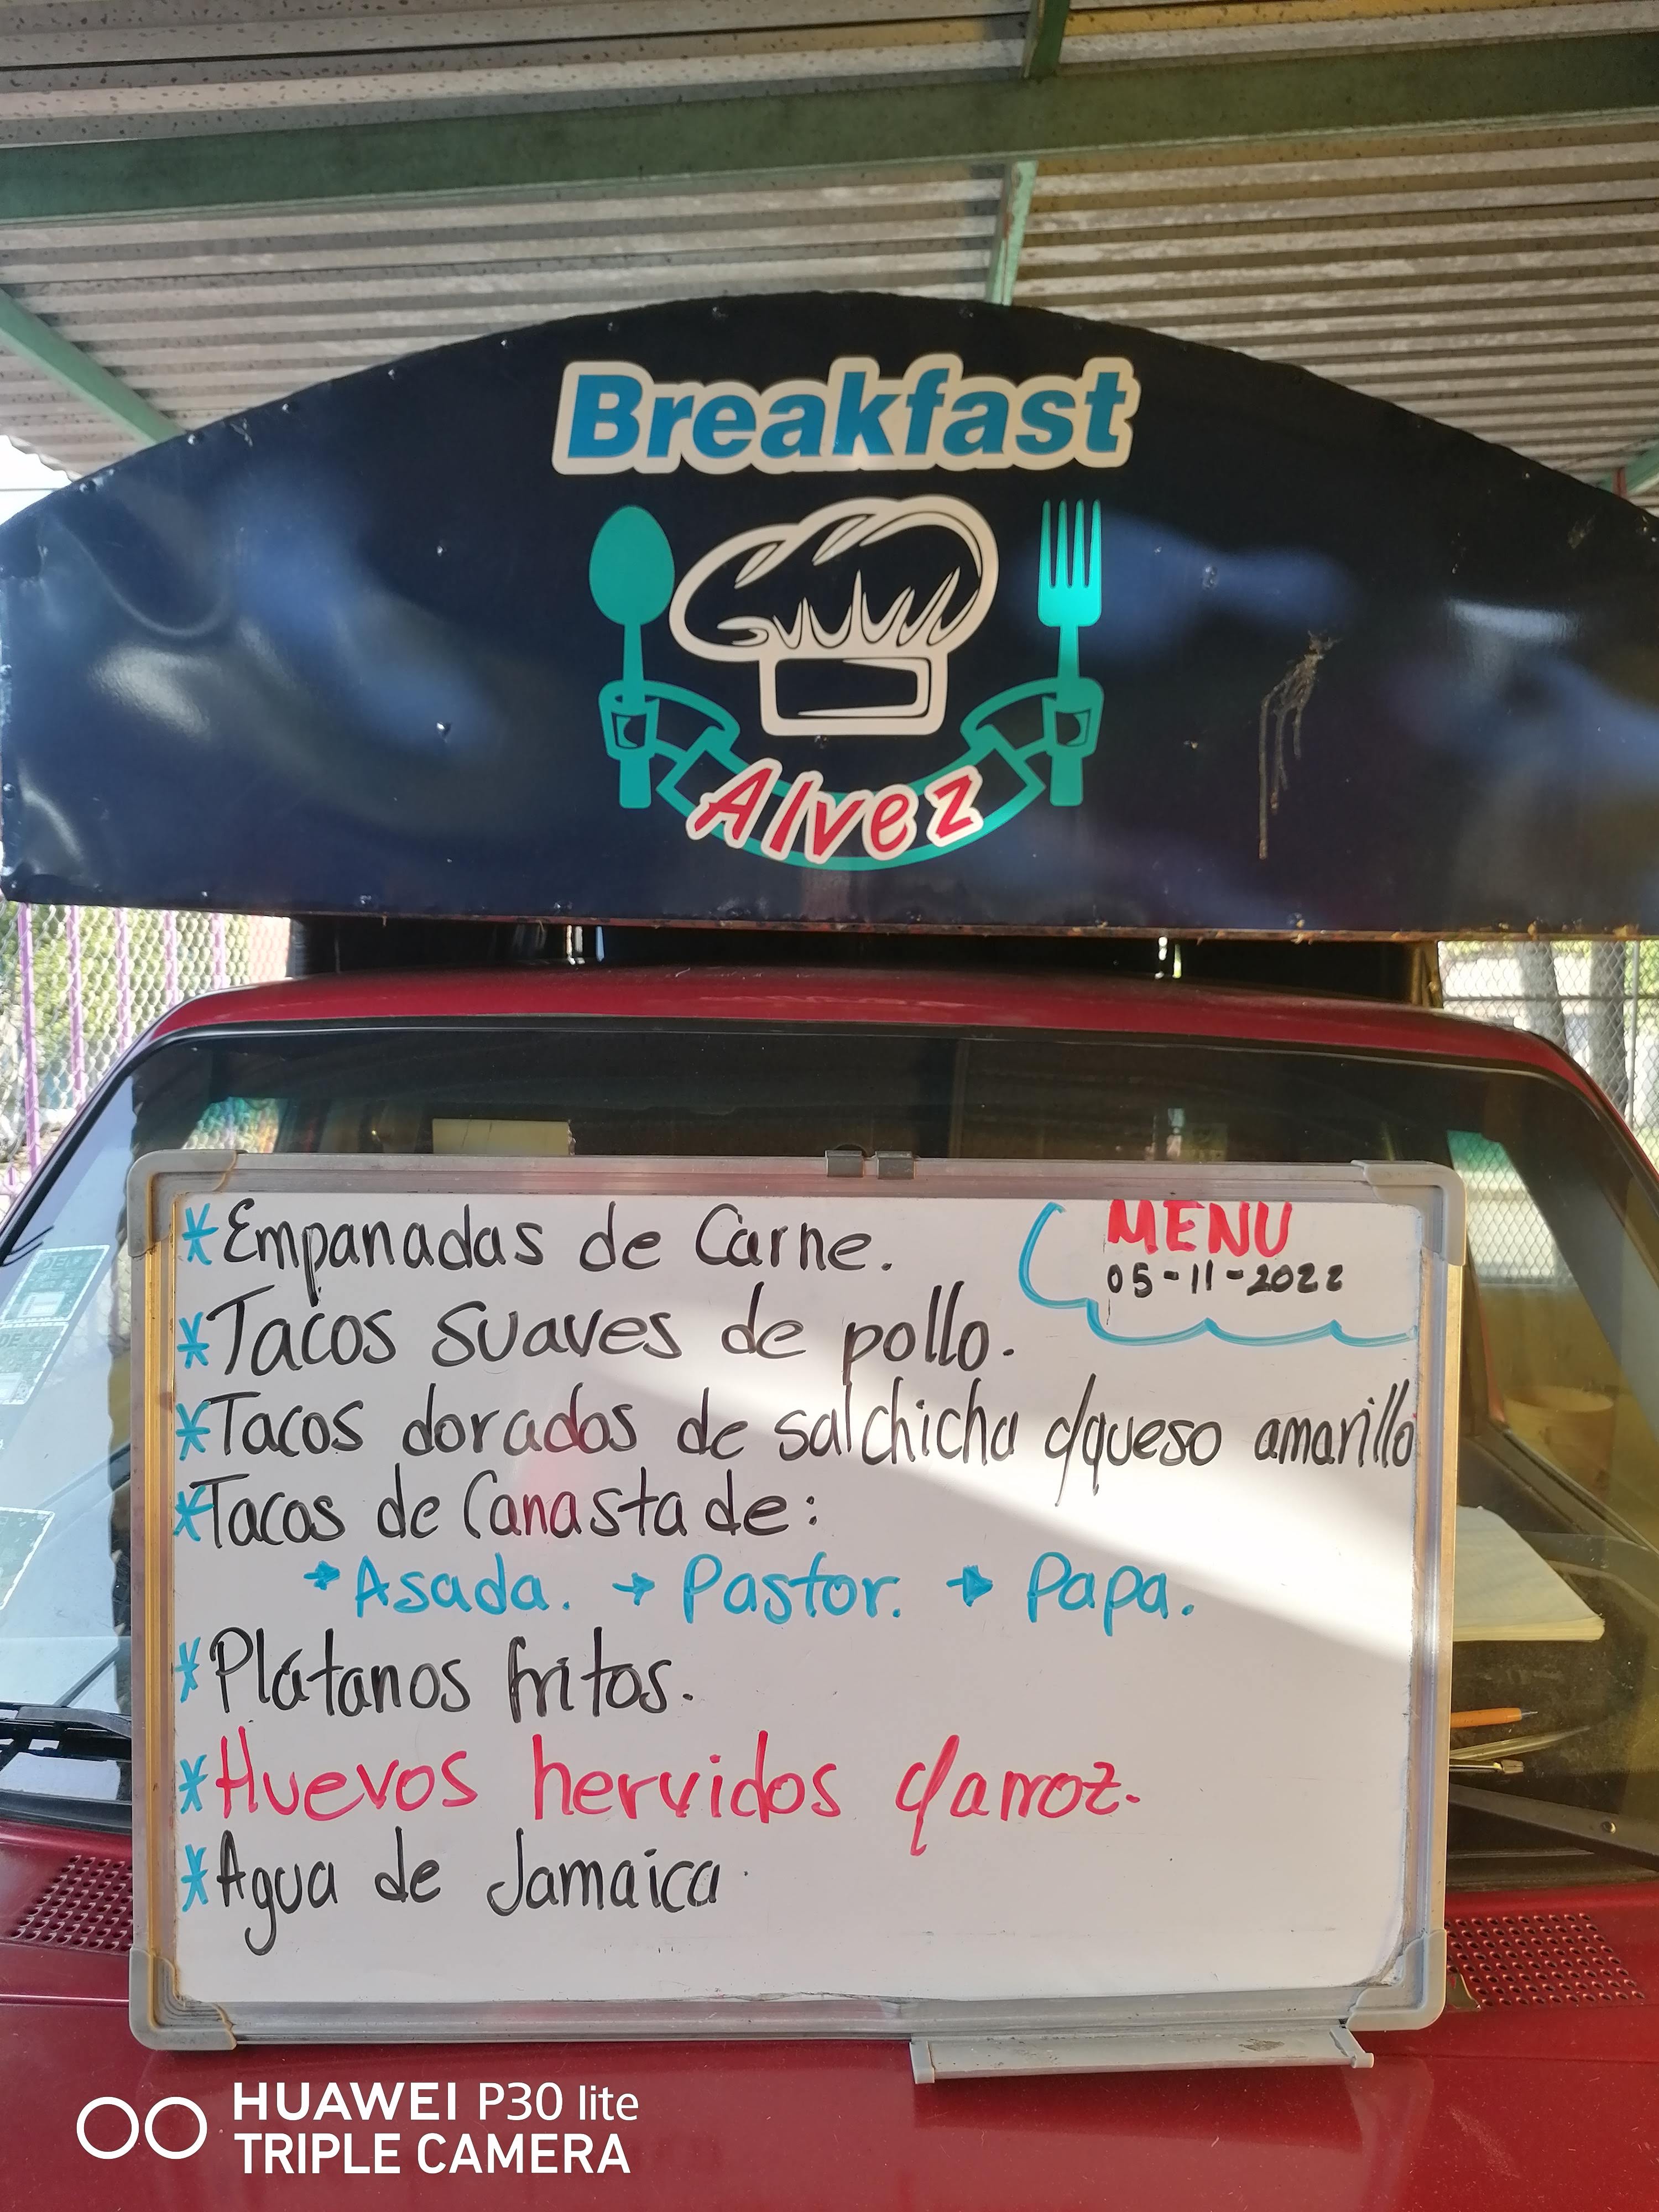 Breakfast
Alvez
MENU
05-11-2022
*Empanadas de Carne.
*Tacos suaves de pollo.
*Tacos dorados de salchicha c/queso amarillo
*Tacos de Canasta de:
→Asada. → Pastor. → Papa.
*Plátanos fritos.
*Huevos hervidos c/arroz.
*Agua de Jamaica.
HUAWEI P30 lite
TRIPLE CAMERA